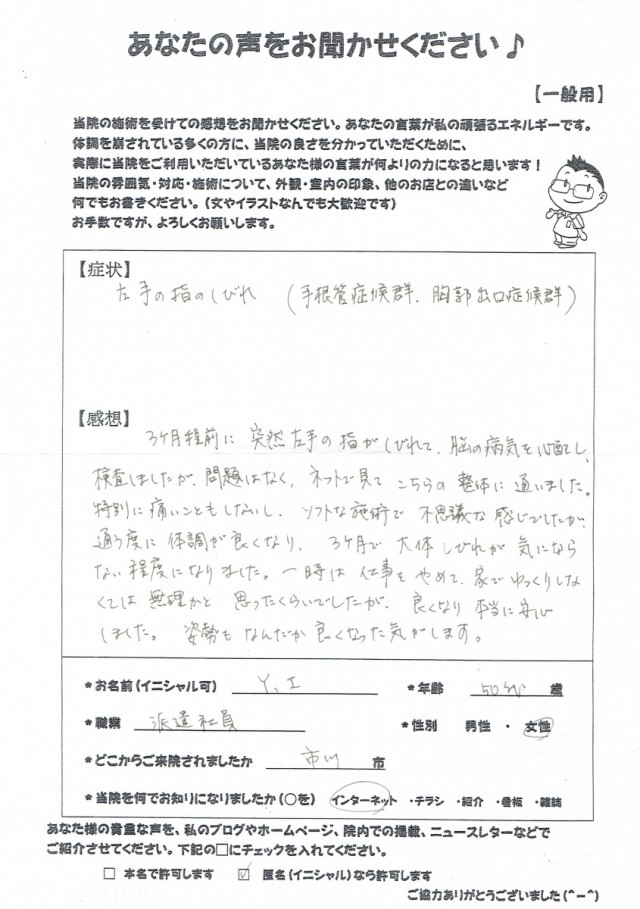 あなたの声をお聞かせください♪
【一般用】
当院の施術を受けての感想をお聞かせください。あなたの言葉が私の頑張るエネルギーです。
体調を崩されている多くの方に、当院の良さを分かっていただくために、
実際に当院をご利用いただいているあなた様の言葉が何よりの力になると思います！
当院の雰囲気・対応・施術について、外観・室内の印象、他のお店との違いなど
何でもお書きください。（文やイラストなんでも大歓迎です）
お手数ですが、よろしくお願いします。
【症状】
左手の指のしびれ （手根管症候群、胸郭出口症候群）
【感想】
3ヶ月程前に突然左手の指がしびれて、脳の病気を心配し、
検査しましたが、問題はなく、ネットで見てこちらの整体に通いました。
特別に痛いこともしないし、ソフトな施術で不思議な感じでしたが、
通う度に体調が良くなり、3ヶ月で大体しびれが気になら
ない程度になりました。一時は仕事をやめて、家でゆっくりしな
くては無理かと思ったくらいでしたが、良くなり本当に安心
しました。姿勢もなんだか良くなった気がします。
*お名前（イニシャル可） Y.I *年齢 50代 歳
*職業 派遣社員 *性別 男性・女性
*どこからご来院されましたか 市川 市
*当院を何でお知りになりましたか（○を） インターネット ・チラシ ・紹介 ・看板 ・雑誌
あなた様の貴重な声を、私のブログやホームページ、院内での掲載、ニュースレターなどで
ご紹介させてください。下記の□にチェックを入れてください。
□ 本名で許可します ☑ 匿名（イニシャル）なら許可します
ご協力ありがとうございました（^ー^）